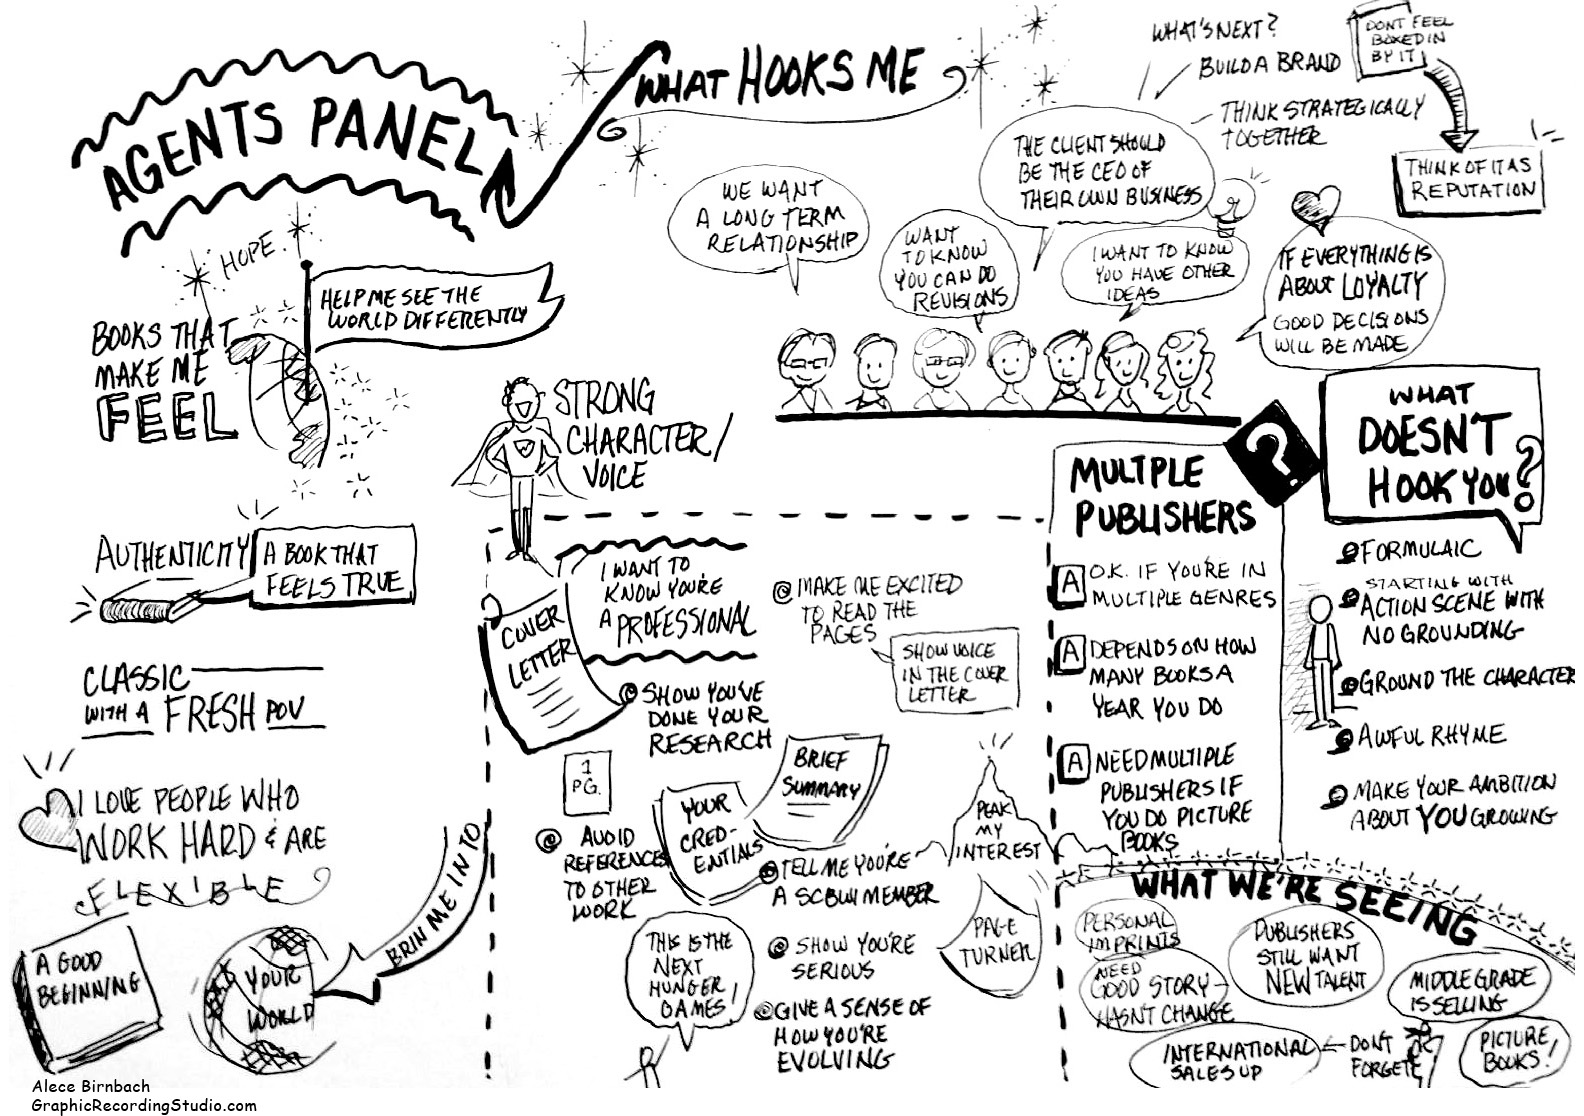 AGENTS PANEL
WHAT HOOKS ME
HOPE
HELP ME SEE THE
WORLD DIFFERENTLY
BOOKS THAT
MAKE ME
FEEL
STRONG
CHARACTER/
VOICE
AUTHENTICITY
A BOOK THAT
FEELS TRUE
CLASSIC
WITH A FRESH POV
I LOVE PEOPLE WHO
WORK HARD & ARE
FLEXIBLE
A GOOD
BEGINNING
YOUR
WORLD
BRIN ME IN TO
WE WANT
A LONG TERM
RELATIONSHIP
WANT
TO KNOW
YOU CAN DO
REVISIONS
THE CLIENT SHOULD
BE THE CEO OF
THEIR OWN BUSINESS
WHAT'S NEXT?
BUILD A BRAND
THINK STRATEGICALLY
TOGETHER
DON'T FEEL
BOXED IN
BY IT
THINK OF IT AS
REPUTATION
I WANT TO KNOW
YOU HAVE OTHER
IDEAS
IF EVERYTHING IS
ABOUT LOYALTY
GOOD DECISIONS
WILL BE MADE
COVER
LETTER
I WANT TO
KNOW YOU'RE
A PROFESSIONAL
SHOW YOU'VE
DONE YOUR
RESEARCH
MAKE ME EXCITED
TO READ THE
PAGES
SHOW VOICE
IN THE COVER
LETTER
1
PG.
BRIEF
SUMMARY
YOUR
CRED-
ENTIALS
AVOID
REFERENCES
TO OTHER
WORK
THIS IS THE
NEXT
HUNGER
GAMES!
TELL ME YOU'RE
A SCBWI MEMBER
SHOW YOU'RE
SERIOUS
GIVE A SENSE OF
HOW YOU'RE
EVOLVING
PEAK
MY
INTEREST
PAGE
TURNER
?
MULTIPLE
PUBLISHERS
A O.K. IF YOU'RE IN
MULTIPLE GENRES
A DEPENDS ON HOW
MANY BOOKS A
YEAR YOU DO
A NEED MULTIPLE
PUBLISHERS IF
YOU DO PICTURE
BOOKS
WHAT
DOESN'T
HOOK YOU?
FORMULAIC
STARTING WITH
ACTION SCENE WITH
NO GROUNDING
GROUND THE CHARACTER
AWFUL RHYME
MAKE YOUR AMBITION
ABOUT YOU GROWING
WHAT WE'RE SEEING
PERSONAL
IMPRINTS
NEED
GOOD STORY -
HASN'T CHANGE
PUBLISHERS
STILL WANT
NEW TALENT
MIDDLE GRADE
IS SELLING
INTERNATIONAL
SALES UP
DON'T
FORGET
PICTURE
BOOKS!
Alece Birnbach
GraphicRecordingStudio.com